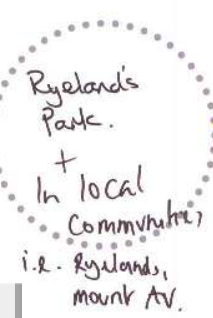 Ryeland's
Park.
+
In local
Communities
i.e. Rylands,
mount Av.